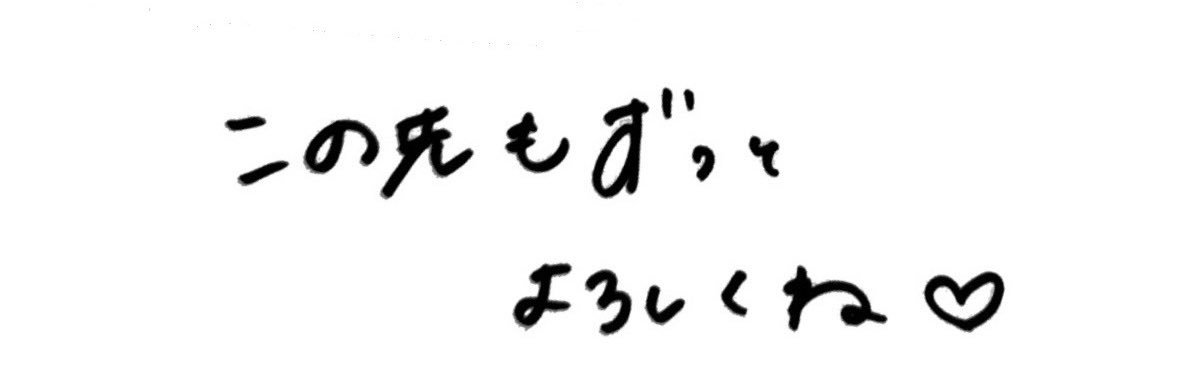 この先もずっと
よろしくね♡